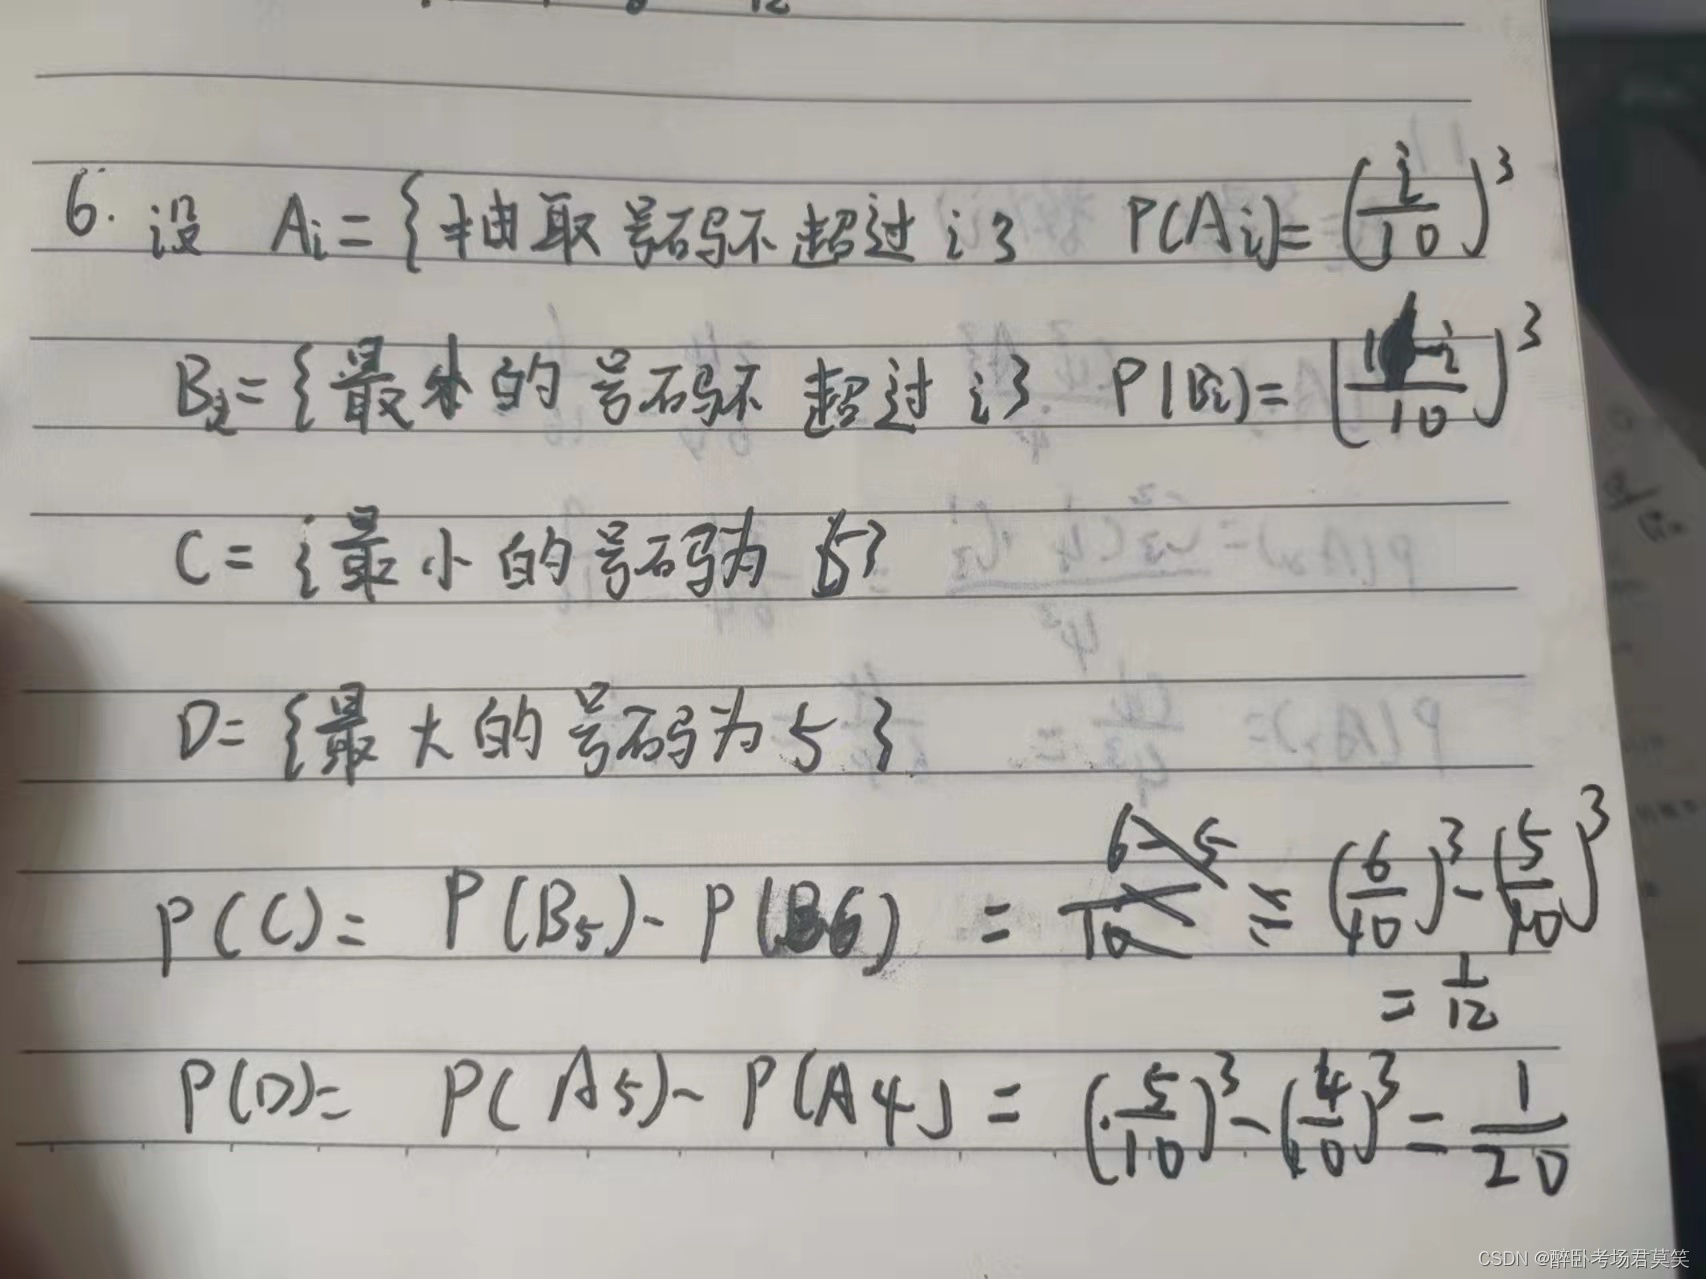 6. 设 Ai = {抽取号码不超过i} P(Ai) = (i/10)^3
Bi = {最小的号码不超过i} P(Bi) = (11-i/10)^3
C = {最小的号码为5}
D = {最大的号码为5}
P(C) = P(B5) - P(B6) = 6-5/10 = (6/10)^3 - (5/10)^3
= 1/12
P(D) = P(A5) - P(A4) = (5/10)^3 - (4/10)^3 = 1/20
CSDN @醉卧考场君莫笑